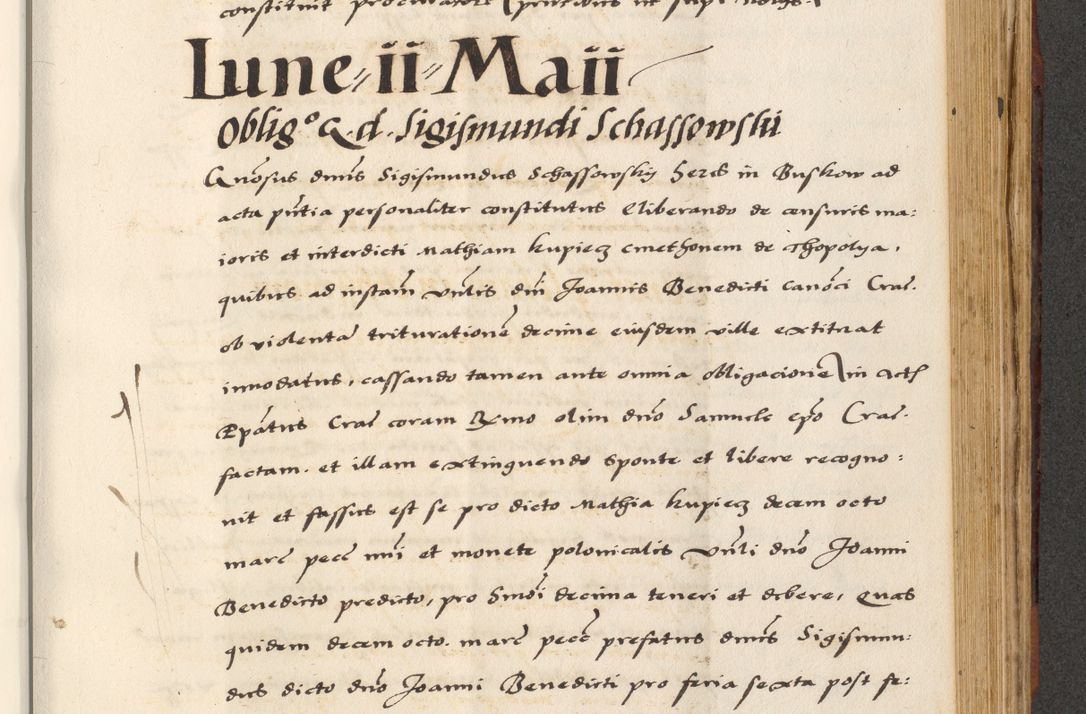 constituit procuratorē
Lune ii Maii
Obligᵒ G d. Sigismundi Schassowski
Gnōsus dmīs Sigismundus Schassowsky heres in Buskow ad
acta pn̄tia personaliter constitutus eliberando de censuris ma:
ioris et interdicti Mathiam kupiecz cmethonem de Thopolya,
quibus ad instan̄ vn̄lis dn̄i Joannis Benedicti canōci Crac̄.
ob violentā triturationē decime eiusdem ville extituat
innodatus, cassando tamen ante omnia obligacionē in Actis
Ep̄atus Crac̄ coram Rmo olim dn̄o Samuele ep̄o Crac̄.
factam. et illam extinguendo sponte et libere recogno:
uit et fassus est se pro dicto Mathia kupiecz decem octo
marc̄ pecc̄ nn̄i et monete polonicalis vn̄li dn̄o Joanni
Benedicto predicto, pro hmōi decima teneri et debere, Quas
quidem decem octo. marc̄ pecc̄ prefatus dmīs Sigismun:
dus dicto dn̄o Joanni Benedicti pro feria sexta post fe: